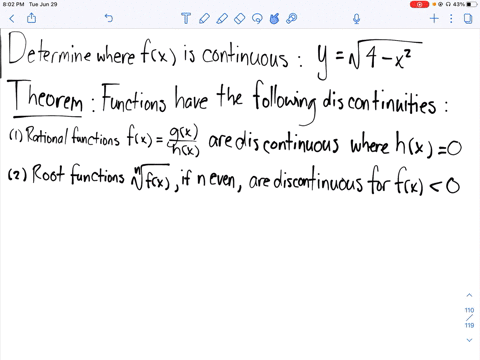 8:02 PM Tue Jun 29
43%
Determine where f(x) is continuous: y = √(4 - x²)
Theorem: Functions have the following discontinuities:
(1) Rational functions f(x) = g(x)/h(x) are discontinuous where h(x) = 0
(2) Root functions ⁿ√f(x), if n even, are discontinuous for f(x) < 0
110
/
119